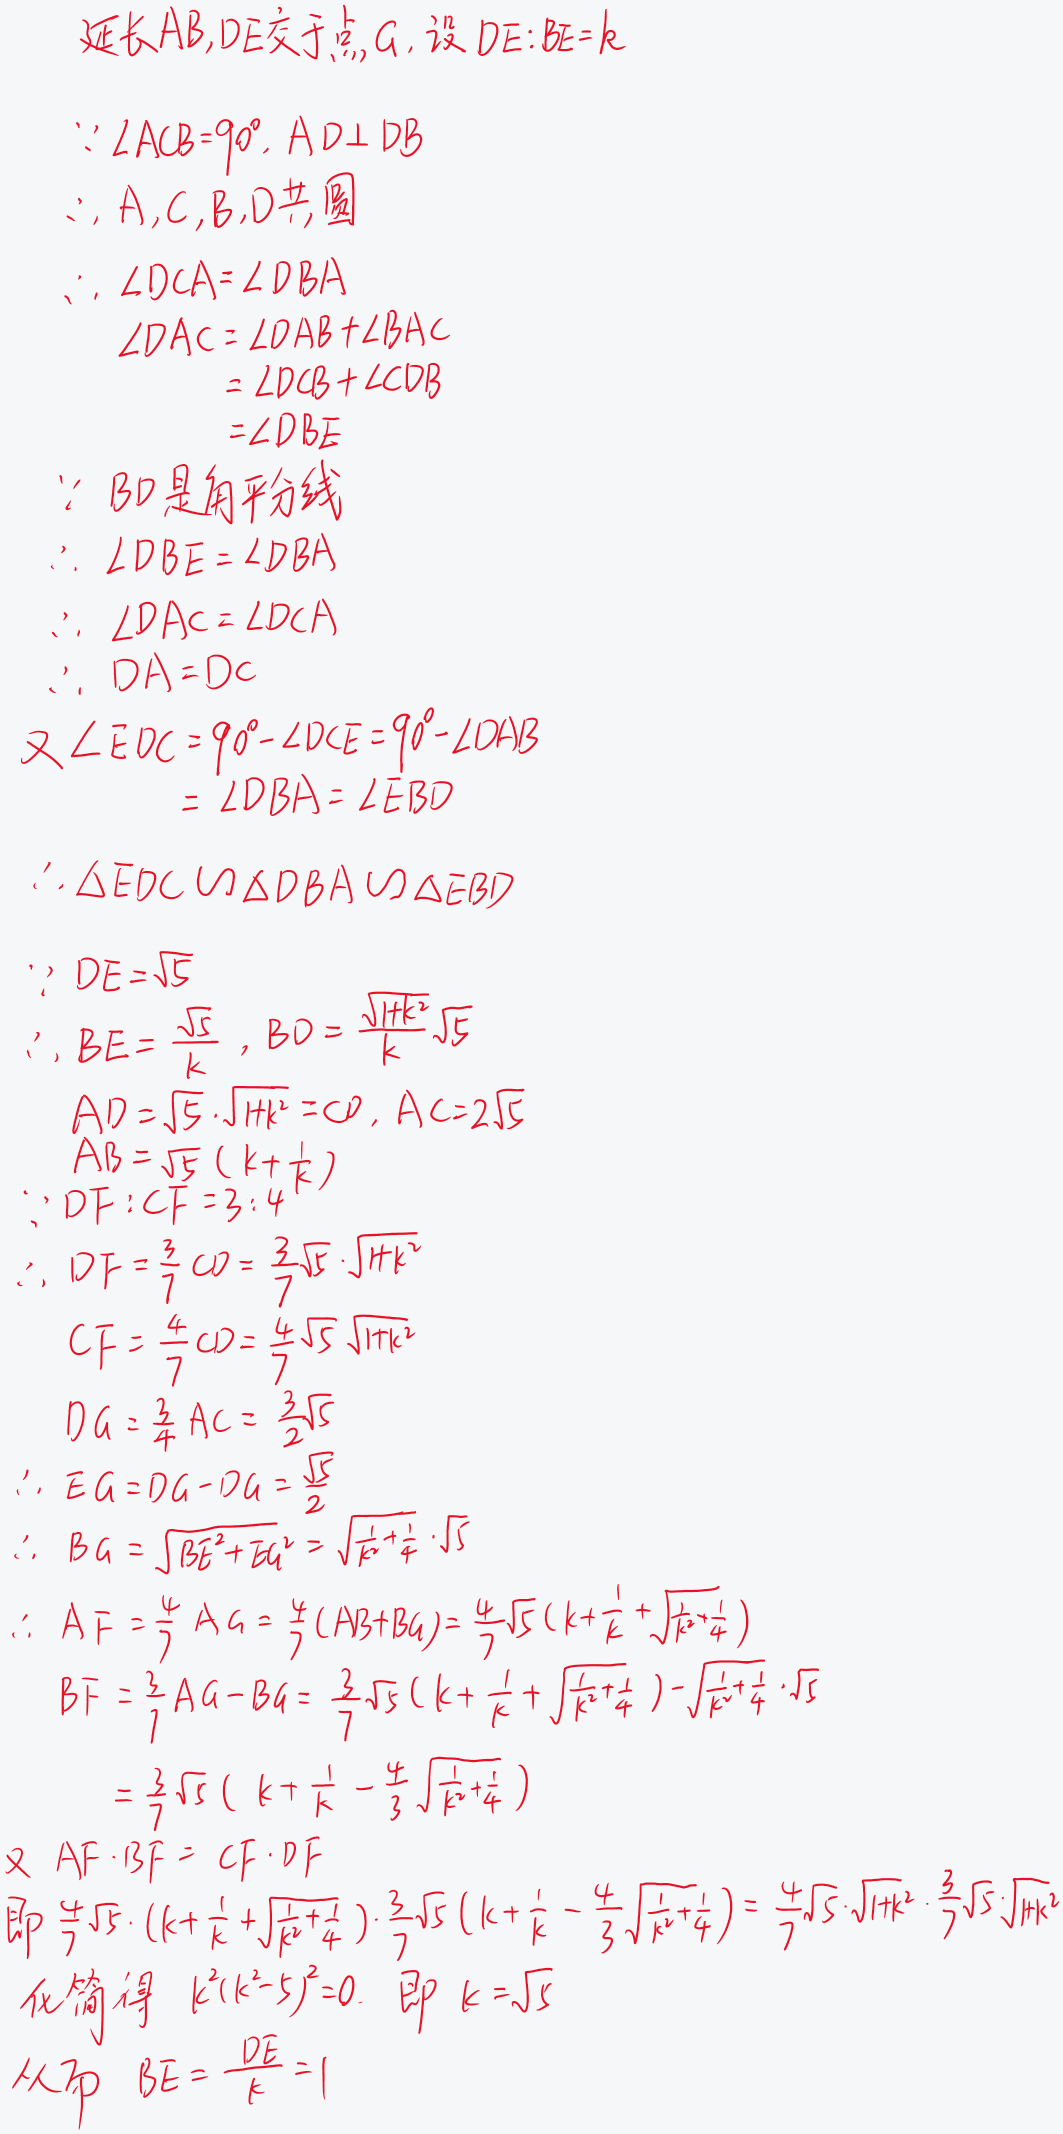 延长AB,DE交于点G.设DE:BE=k
∵∠ACB=90°.AD⊥DB
∴A,C,B,D共圆
∴∠DCA=∠DBA
∠DAC=∠DAB+∠BAC
=∠DCB+∠CDB
=∠DBE
∵BD是角平分线
∴∠DBE=∠DBA
∴∠DAC=∠DCA
∴DA=DC
又∠EDC=90°-∠DCE=90°-∠DAB
=∠DBA=∠EBD
∴△EDC∽△DBA∽△EBD
∵DE=√5
∴BE=√5/k,BD=√(1+k²)/k √5
AD=√5·√(1+k²)=CD,AC=2√5
AB=√5(k+1/k)
∵DF:CF=3:4
∴DF=3/7 CD=3/7 √5·√(1+k²)
CF=4/7 CD=4/7 √5 √(1+k²)
DG=3/4 AC=3/2 √5
∴EG=DG-DG=√5/2
∴BG=√(BE²+EG²)=√(1/k²+1/4)·√5
∴AF=4/7 AG=4/7(AB+BG)=4/7 √5(k+1/k+√(1/k²+1/4))
BF=3/7 AG-BG=3/7 √5(k+1/k+√(1/k²+1/4))-√(1/k²+1/4)·√5
=3/7 √5(k+1/k-4/3 √(1/k²+1/4))
又AF·BF=CF·DF
即4/7 √5·(k+1/k+√(1/k²+1/4))·3/7 √5(k+1/k-4/3 √(1/k²+1/4))=4/7 √5·√(1+k²)·3/7 √5·√(1+k²)
化简得 k²(k²-5)²=0.即k=√5
从而 BE=DE/k=1